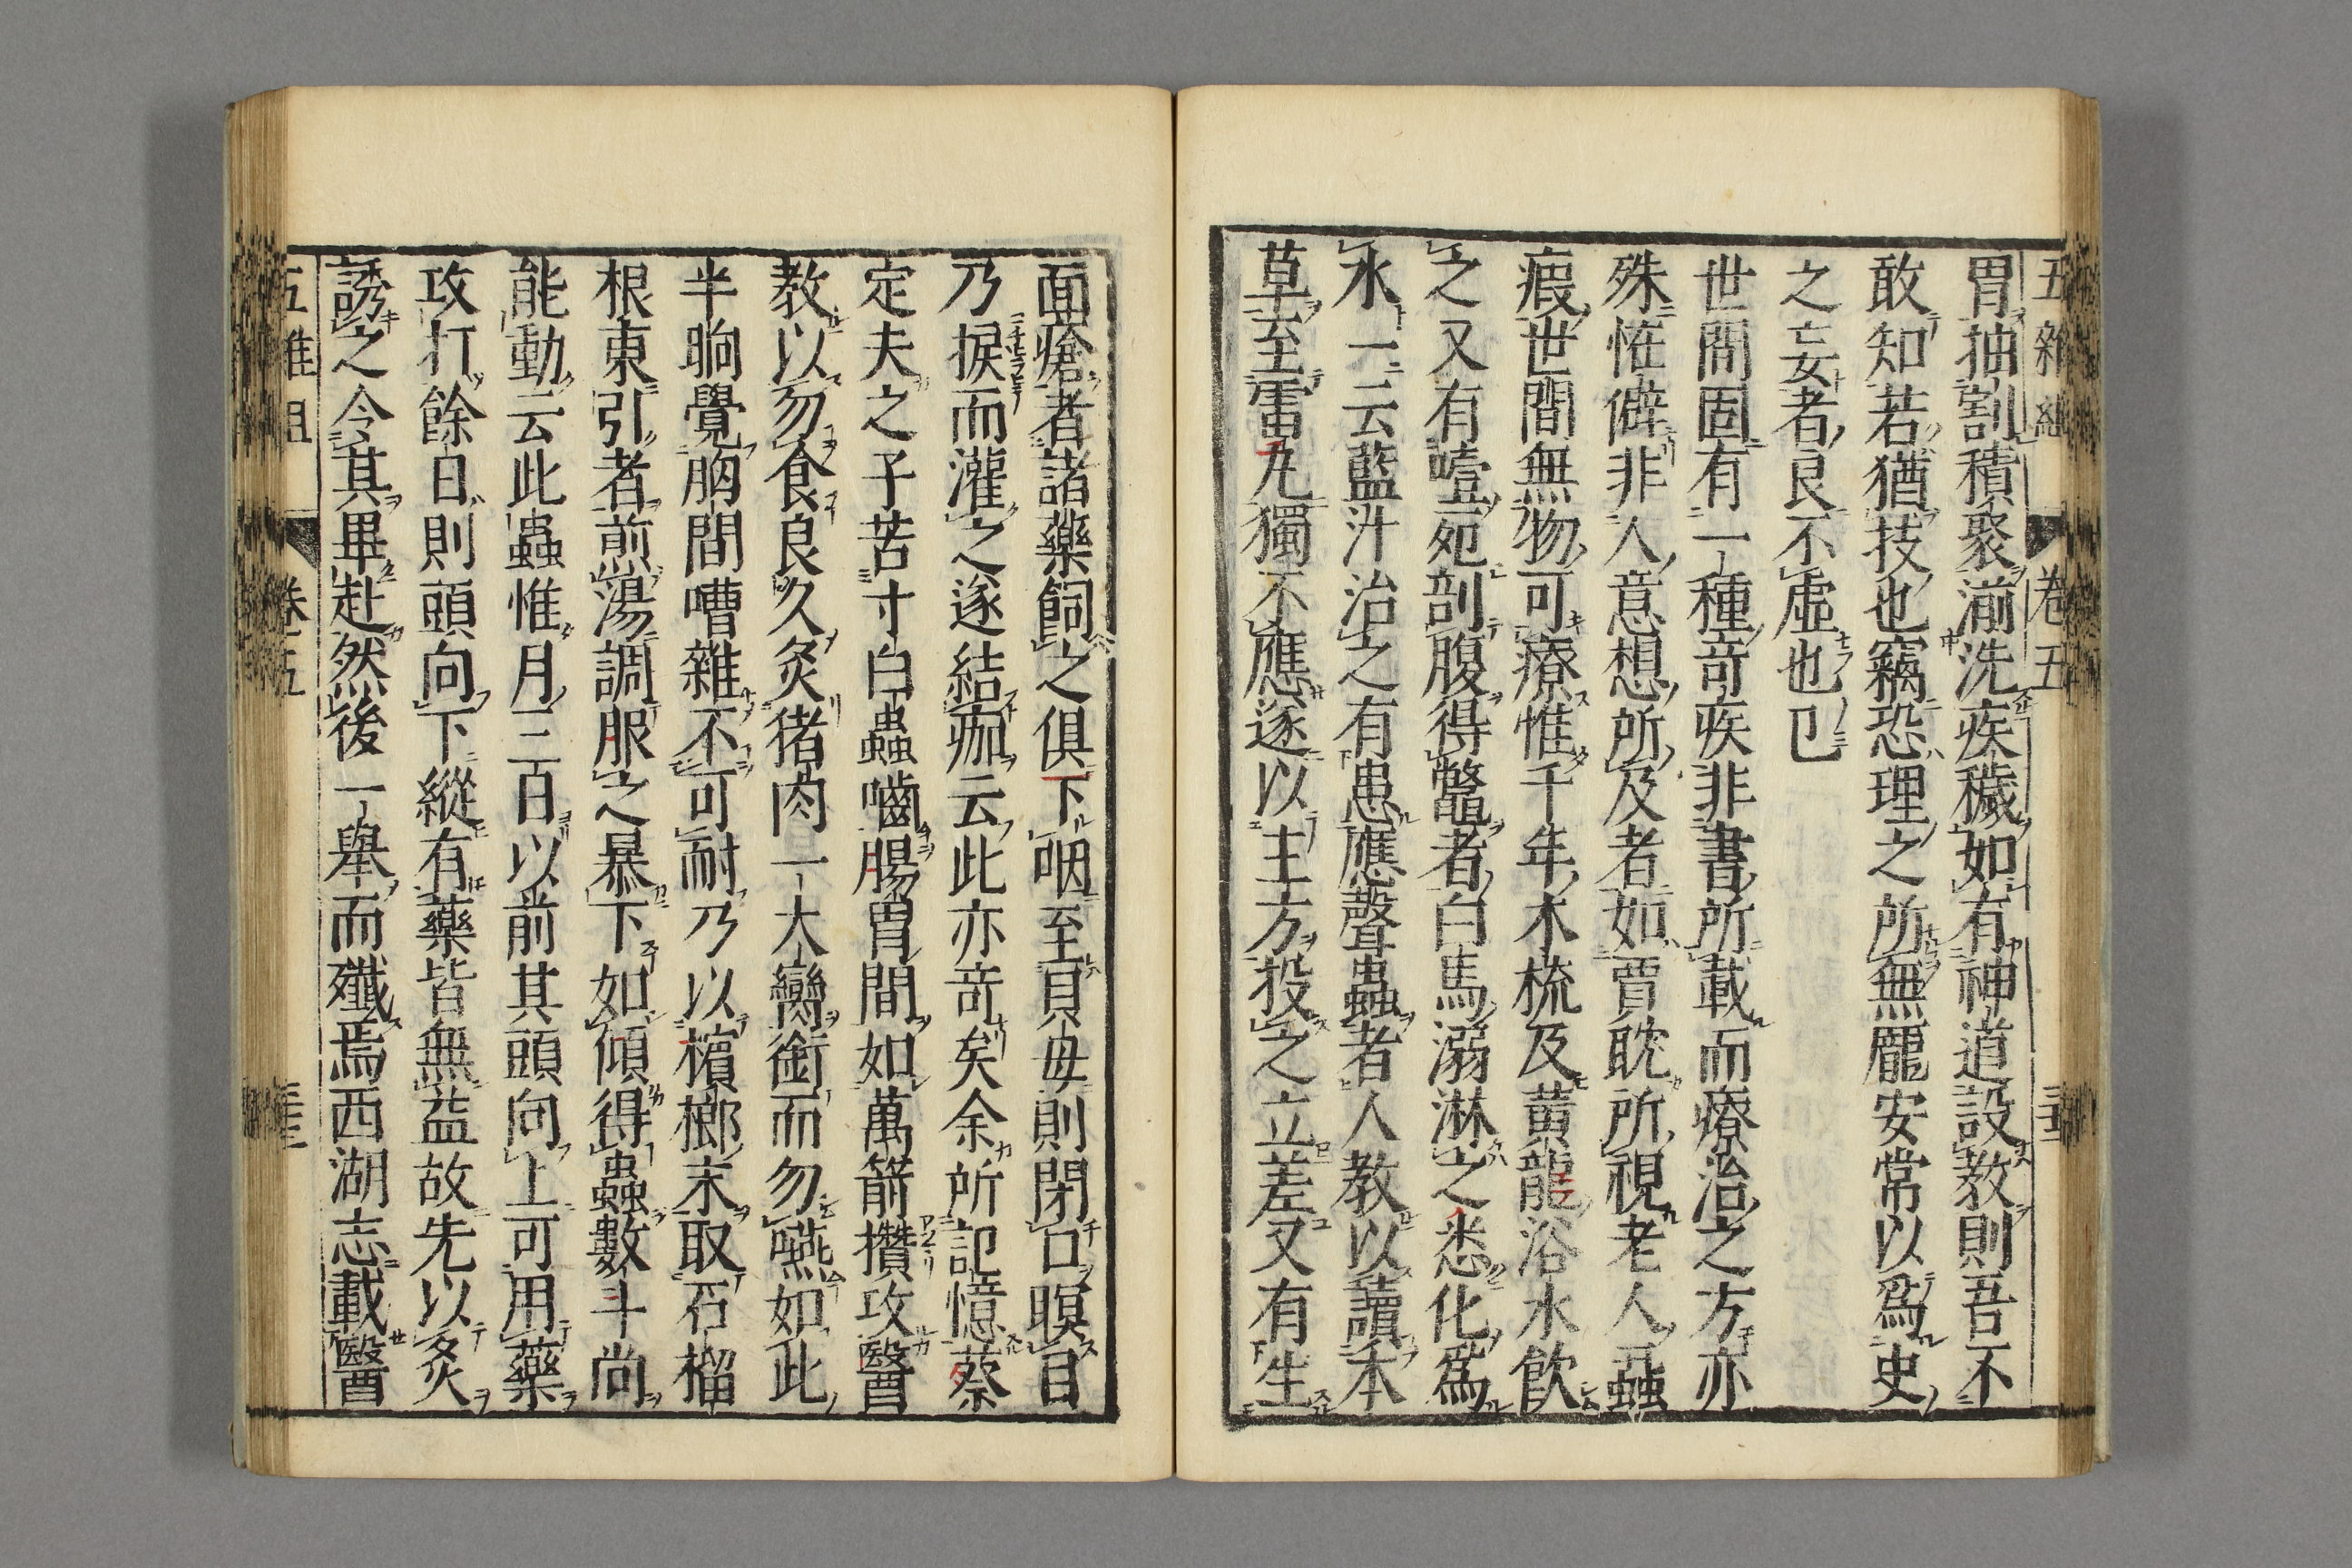 五雜組 卷五
胃抽割積聚湔洗疾穢如有神道設教則吾不
敢知若猶技也竊恐理之所無龐安常以爲史
之妄者良不虛也已
世間固有一種竒疾非書所載而療治之方亦
殊恠僻非人意想所及者如賈眈所視老人蝨
瘕世間無物可療惟千年木梳及黄龍浴水飲
之又有噎死剖腹得鼈者白馬溺淋之悉化爲
水一云藍汁治之有患應聲蟲者人教以讀本
草至雷丸獨不應遂以主方投之立差又有生
面瘡者諸藥飼之俱下咽至貝母則閉口瞑目
乃捩而灌之遂結痂云此亦竒矣余所記憶蔡
定夫之子苦寸白蟲嚙腸胃間如萬箭攢攻醫
教以勿食良久炙猪肉一大臠銜而勿嚥如此
半晌覺胸間嘈雜不可耐乃以檳榔末取石榴
根東引者煎湯調服之暴下如傾得蟲數斗尚
能動云此蟲惟月三日以前其頭向上可用藥
攻打餘日則頭向下縱有藥皆無益故先以炙
誘之令其畢赴然後一舉而殲焉西湖志載醫
五雜俎 卷五